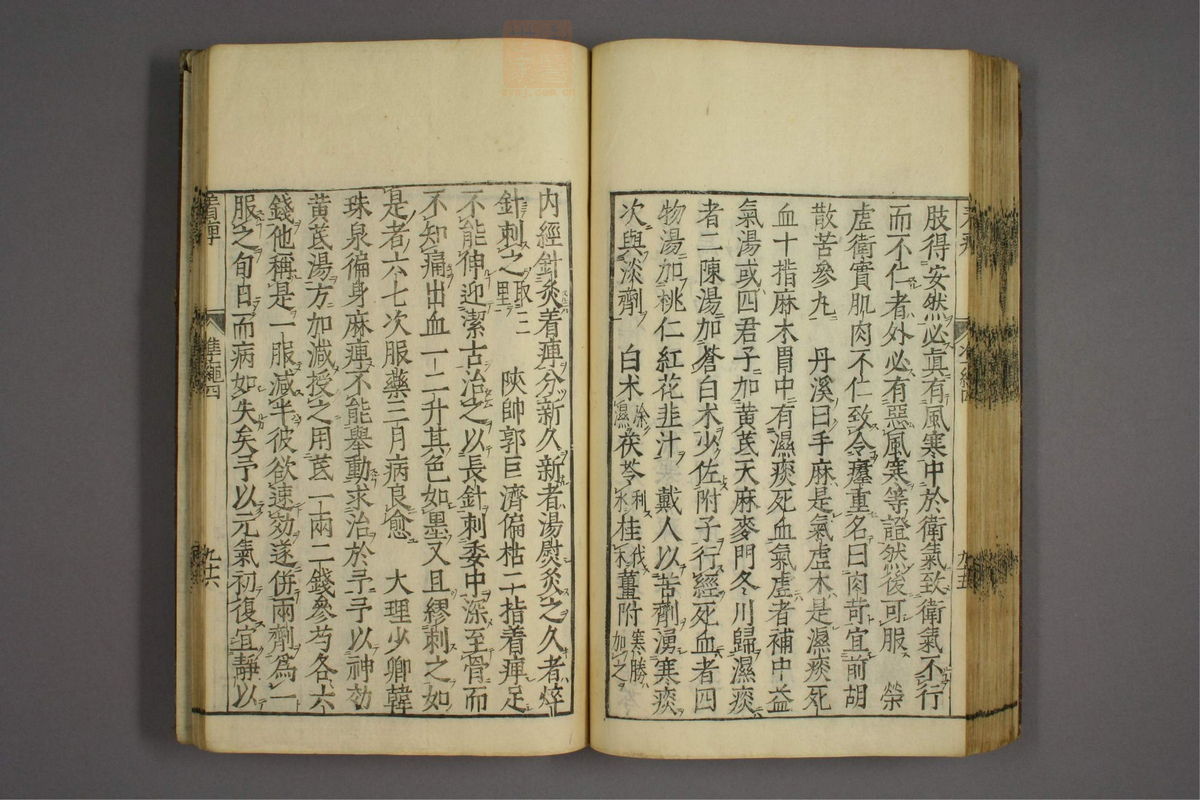 肢得安然必眞有風寒中於衛氣致衛氣不行
而不仁者外必有惡風寒等證然後可服 榮
虛衛實肌肉不仁致令𤸷重名曰肉苛宜前胡
散苦參丸 丹溪曰手麻是氣虛木是濕痰死
血十指麻木胃中有濕痰死血氣虛者補中益
氣湯或四君子加黃芪天麻麥門冬川歸濕痰
者二陳湯加蒼白朮少佐附子行經死血者四
物湯加桃仁紅花韭汁 戴人以苦劑湧寒痰
次與淡劑 白朮除濕茯苓利水桂伐木薑附寒勝加之
九五
内經針灸着痺分新久新者湯熨灸之久者焠
針刺之取三里 陜帥郭巨濟偏枯二指着痺足
不能伸迎潔古治之以長針刺委中深至骨而
不知痛出血一二升其色如墨又且繆刺之如
是者六七次服藥三月病良愈 大理少卿韓
珠泉徧身麻痺不能舉動求治於予予以神効
黃芪湯方加減授之用芪一兩二錢參芍各六
錢他稱是一服減半彼欲速効遂併兩劑爲一
服之旬日而病如失矣予以元氣初復宜靜以
着痺
準繩四
九六